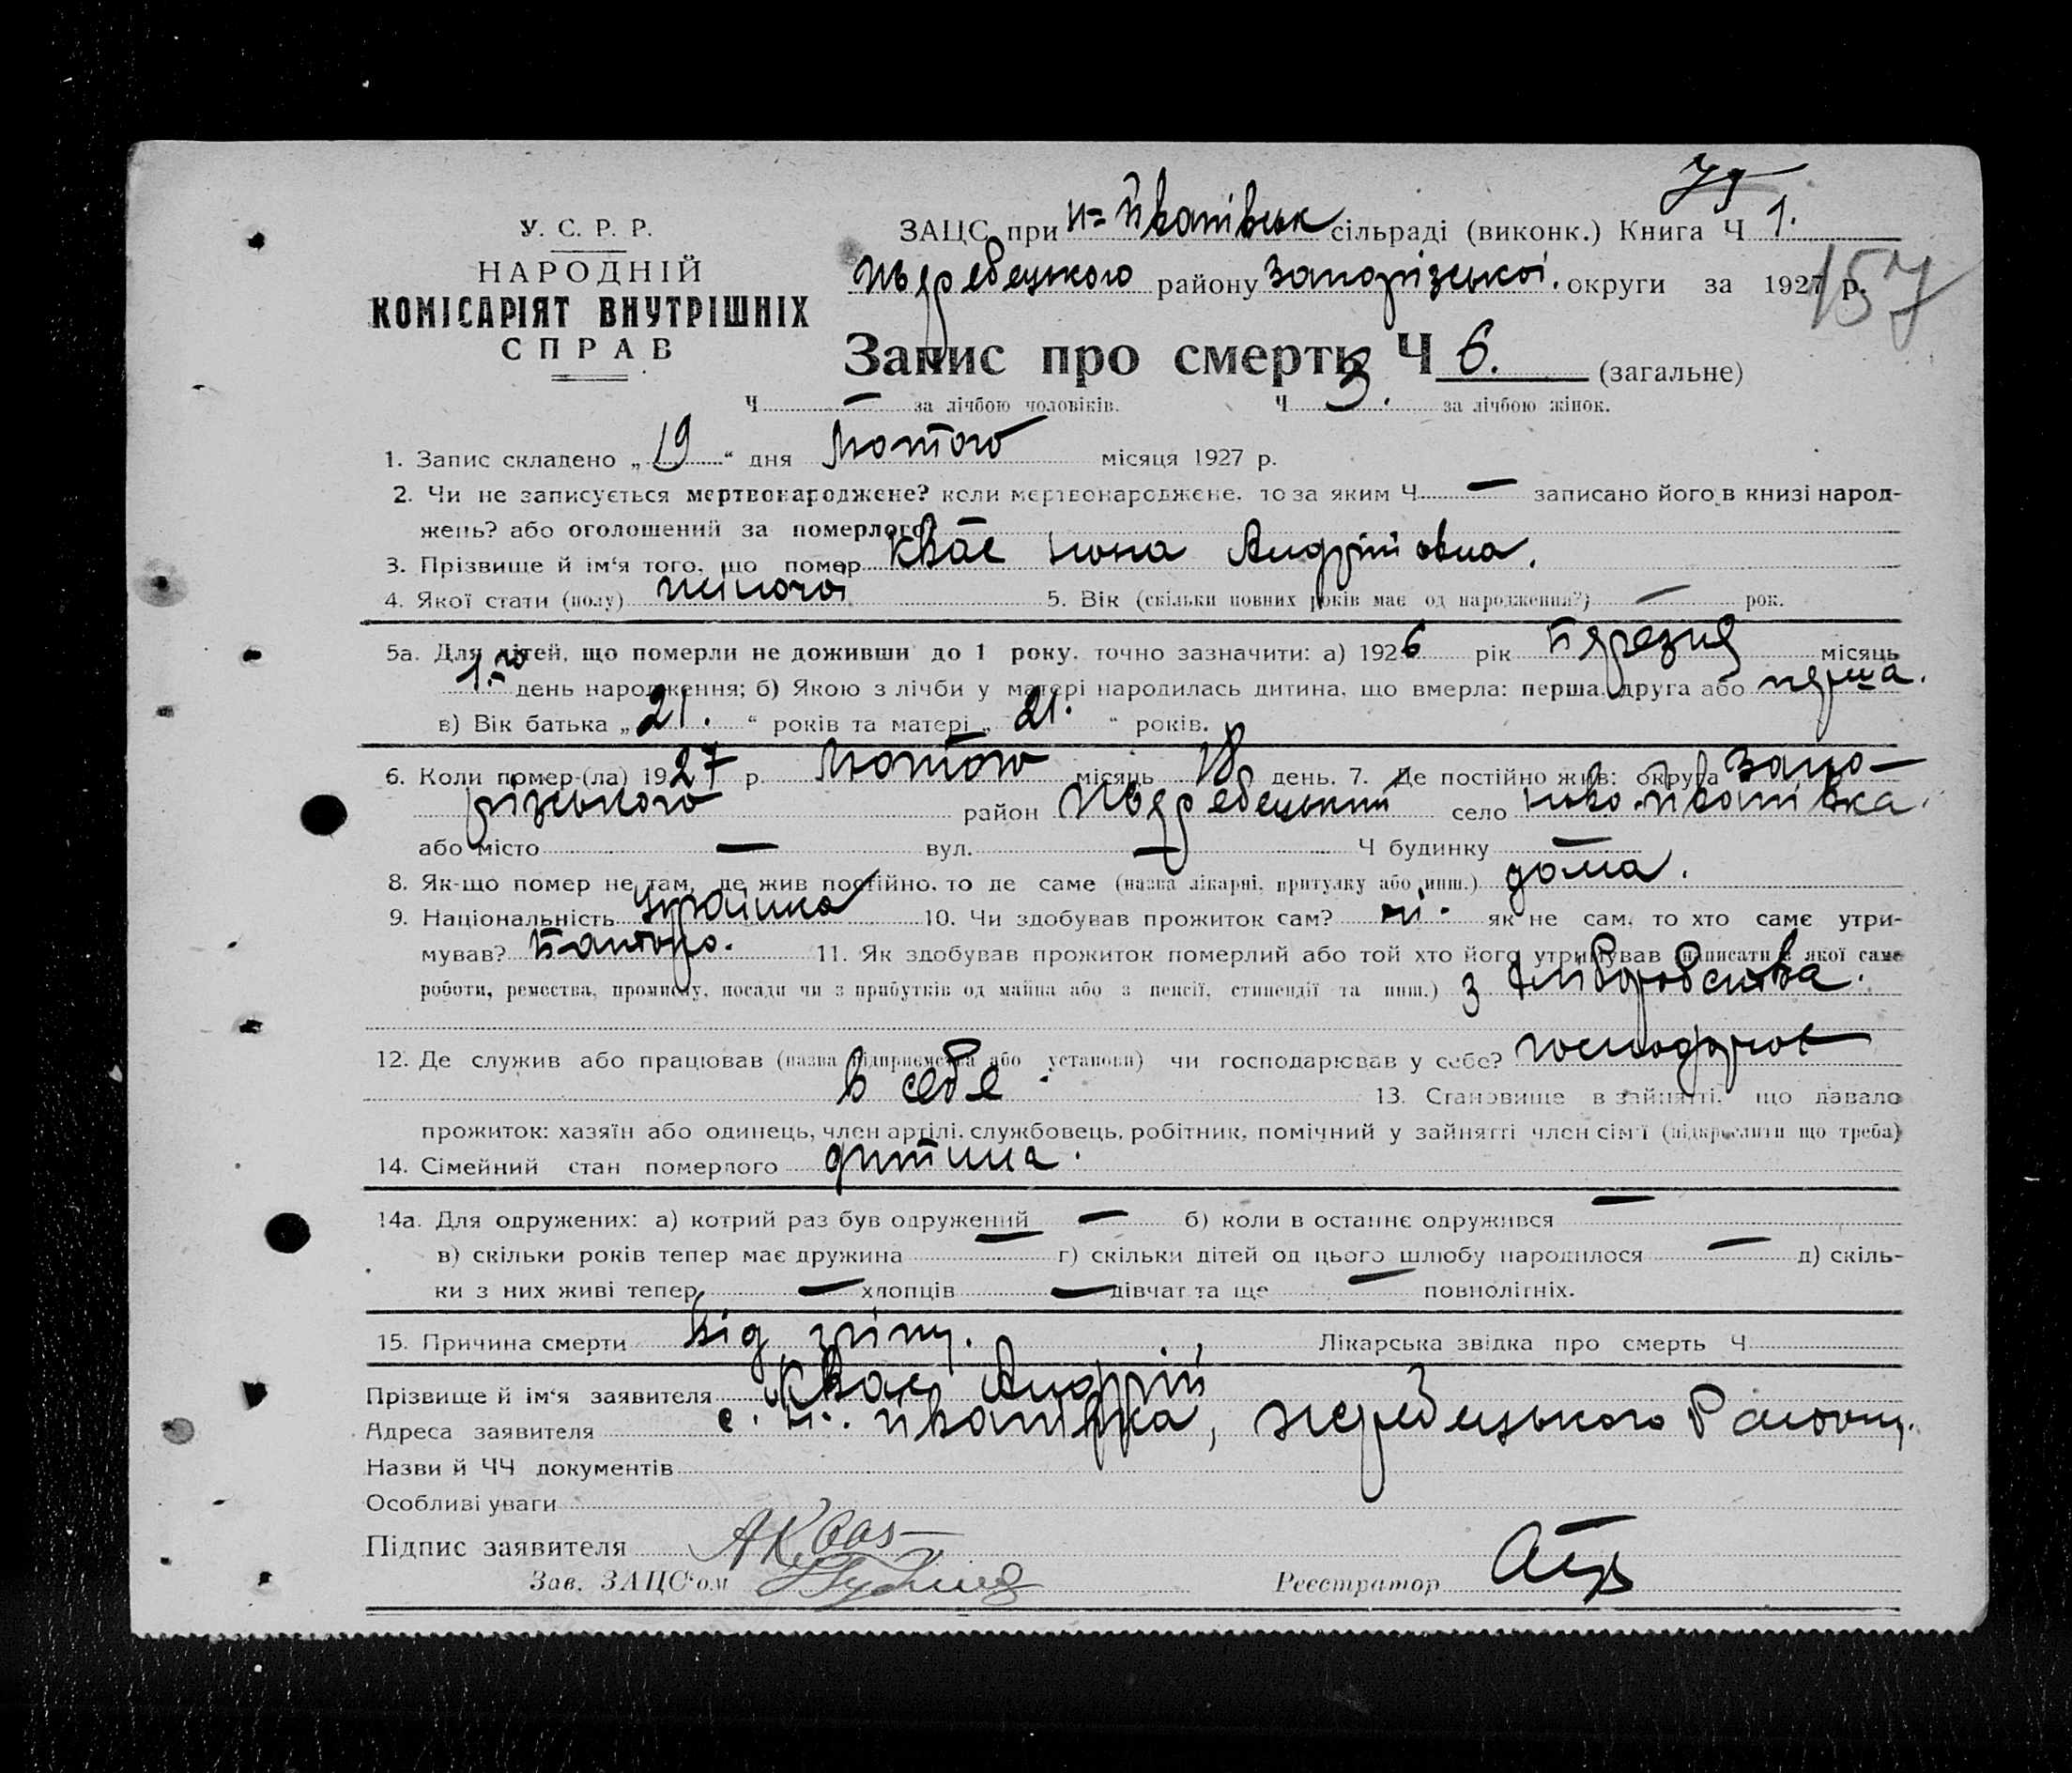 75
У. С. Р. Р.
НАРОДНІЙ
КОМІСАРІЯТ ВНУТРІШНІХ
СПРАВ
ЗАЦС при Н=Йванівськ сільраді (виконк.) Книга Ч 1.
району Запорізької округи за 1927 р.
157
Запис про смерть Ч 6. (загальне)
Ч — за лічбою чоловіків. Ч 3. за лічбою жінок.
1. Запис складено „19“ дня Лютого місяця 1927 р.
2. Чи не записується мертвонароджене? коли мертвонароджене, то за яким Ч — записано його в книзі народ-
жень? або оголошений за померлого —
3. Прізвище й ім‘я того, що помер Квас Андріївна.
4. Якої стати (полу) жіночої 5. Вік (скільки повних років має од народження?) — рок.
5а. Для дітей, що померли не доживши до 1 року, точно зазначити: а) 1926 рік місяць
1-го день народження; б) Якою з лічби у матері народилась дитина, що вмерла: перша, друга або перша.
в) Вік батька „21.“ років та матері „21.“ років.
6. Коли помер-(ла) 1927 р. Лютого місяць 18 день. 7. Де постійно жив: округа Запо-
різького район село Ново-Йванівка.
або місто — вул. — Ч будинку —
8. Як-що помер не там, де жив постійно, то де саме (назва лікарні, притулку або инш.) дома.
9. Національність Українка 10. Чи здобував прожиток сам? ні. як не сам, то хто саме утри-
мував? 11. Як здобував прожиток померлий або той хто його утримував (написати з якої саме
роботи, ремества, промислу, посади чи з прибутків од майна або з пенсії, стипендії та инш.) з хліборобства.
12. Де служив або працював (назва підприємства або установи) чи господарював у себе? господарює
в себе. 13. Становище в зайнятті, що давало
прожиток: хазяїн або одинець, член артілі, службовець, робітник, помічний у зайнятті член сім‘ї (підкреслити що треба)
14. Сімейний стан померлого дитина.
14а. Для одружених: а) котрий раз був одружений — б) коли в останнє одружився —
в) скільки років тепер має дружина — г) скільки дітей од цього шлюбу народилося — д) скіль-
ки з них живі тепер — хлопців — дівчат та ще — повнолітніх.
15. Причина смерти Від гріпу. Лікарська звідка про смерть Ч
Прізвище й ім‘я заявителя Квас Андрій
Адреса заявителя с. Н. Йванівка, Району.
Назви й ЧЧ документів
Особливі уваги
Підпис заявителя АКвас
Зав. ЗАЦС‘ом Реєстратор